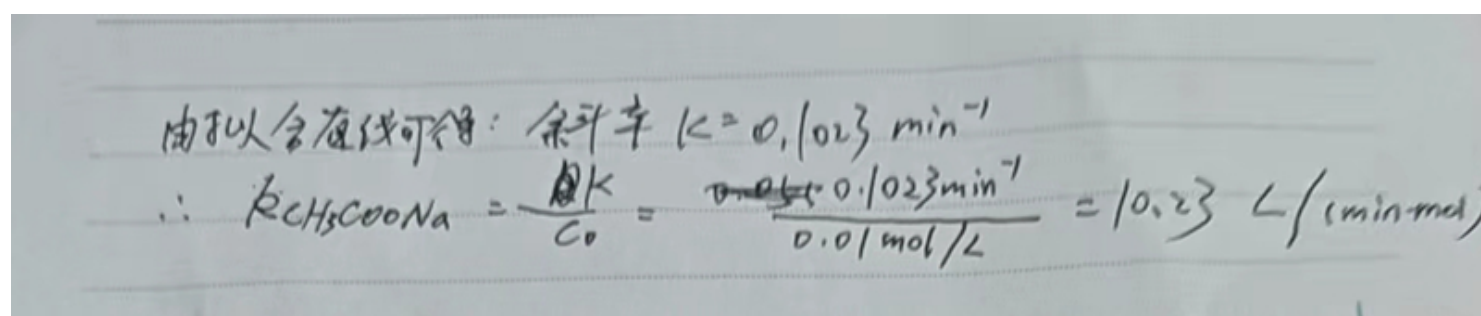 由拟合直线可得: 斜率 K = 0.1023 min⁻¹
∴ kCH₃COONa = K/C₀ = 0.1023min⁻¹/0.01mol/L = 10.23 L/(min·mol)